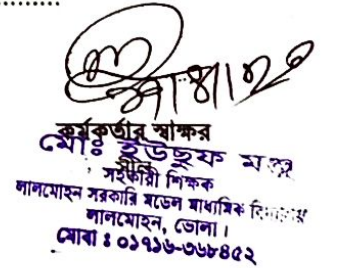 কর্মকর্তার স্বাক্ষর
মোঃ ইউছুফ
সীল
সহকারী শিক্ষক
লালমোহন সরকারি মডেল মাধ্যমিক
লালমোহন, ভোলা।
মোবা : ০১৭১৬-৩৬৮৪৫২